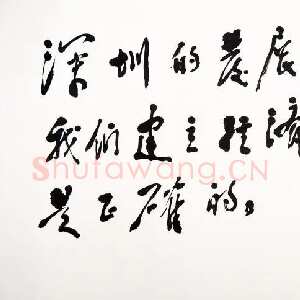 深圳的发展
我们建立经济
是正确的。
Shufawang.CN